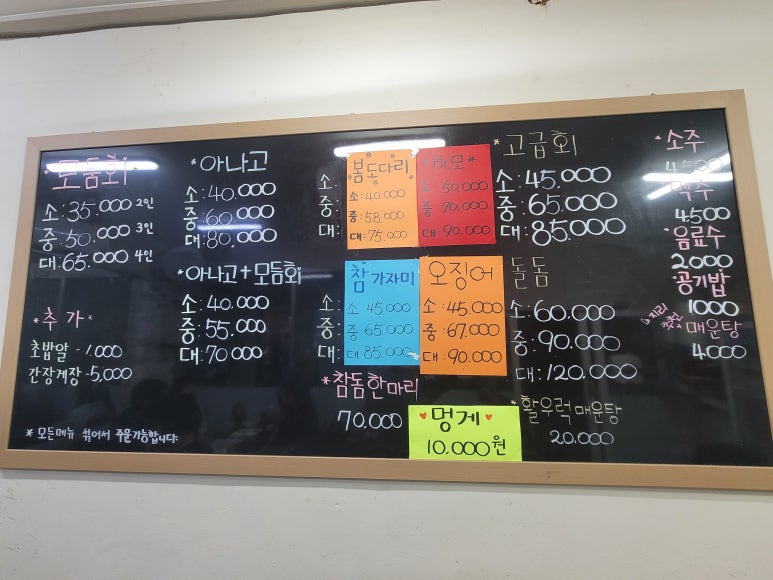 모듬회
소:35.000 2인
중:50.000 3인
대:65.000 4인
*추가
초밥알-1.000
간장게장-5,000
* 모든메뉴 섞어서 주문가능합니다.
*아나고
소:40.000
중:60.000
대:80.000
*아나고+모듬회
소:40.000
중:55.000
대:70.000
소:
중:
대:
봄도다리
소:40.000
중:58.000
대:75.000
*하모*
소:50,000
중:70.000
대:90.000
소:
중:
대:
참가자미
소 45.000
중 65.000
대 85.000
오징어
소:45.000
중:67.000
대:90.000
*참돔한마리
70,000
멍게
10,000원
*고급회
소:45.000
중:65.000
대:85.000
돌돔
소:60.000
중:90.000
대:120.000
*활우럭매운탕
20.000
*소주
4500
맥주
4500
음료수
2.000
공기밥
1000
매운탕
4.000